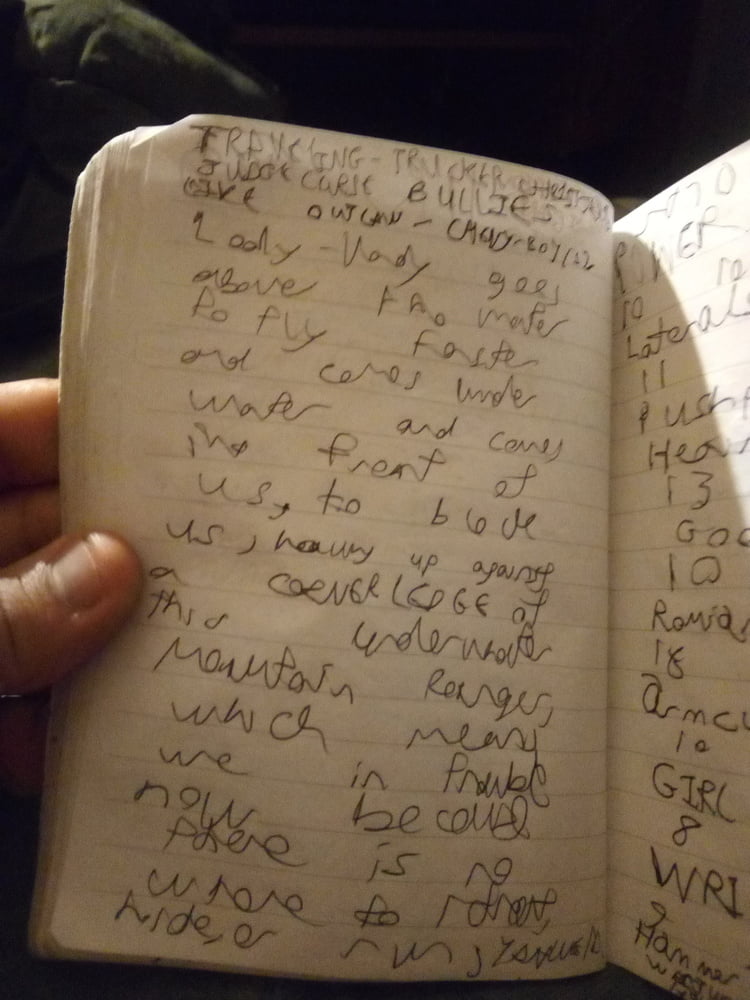 TRAVELING - TRUCKER
JUDGE CURSE BULLIES
GIVE OUTLAW -
Lady - Vady goes
above the water
to fly faster
and comes under
water and comes
in the front of
us, to block
us, having up against
a CORNER LEDGE of
this underwater
Mountain Ranges,
which means
we in trouble
now because
there is no
where to retreat,
hide, or run,
POWER
10
Laterals
11
13
10
18
10
GIRL
8
WRI
9
Hammer